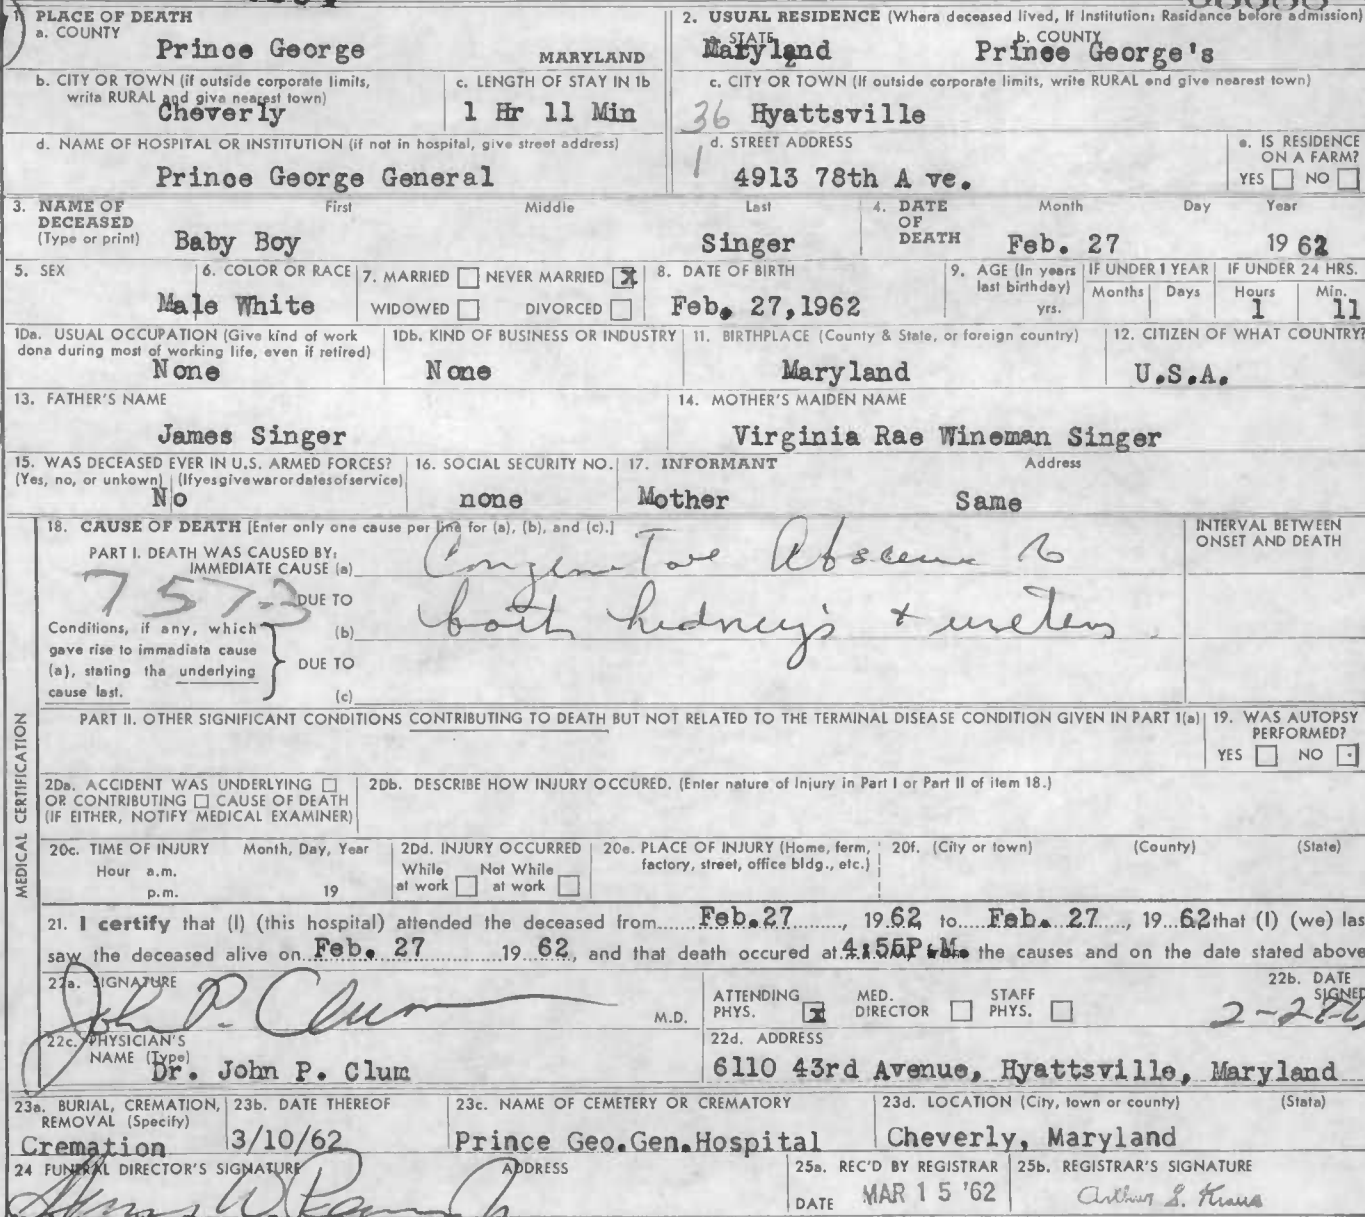 1. PLACE OF DEATH
a. COUNTY
Prince George
MARYLAND
2. USUAL RESIDENCE (Where deceased lived, If Institution: Residence before admission)
a. STATE
Maryland
b. COUNTY
Prince George's
b. CITY OR TOWN (if outside corporate limits,
write RURAL and give nearest town)
Cheverly
c. LENGTH OF STAY IN 1b
1 Hr 11 Min
c. CITY OR TOWN (If outside corporate limits, write RURAL and give nearest town)
36 Hyattsville
d. NAME OF HOSPITAL OR INSTITUTION (if not in hospital, give street address)
Prince George General
d. STREET ADDRESS
1
4913 78th A ve.
e. IS RESIDENCE
ON A FARM?
YES NO
3. NAME OF
DECEASED
(Type or print)
First Middle Last
Baby Boy Singer
4. DATE
OF
DEATH
Month Day Year
Feb. 27 1962
5. SEX
Male
6. COLOR OR RACE
White
7. MARRIED NEVER MARRIED X
WIDOWED DIVORCED
8. DATE OF BIRTH
Feb. 27,1962
9. AGE (In years
last birthday)
yrs.
IF UNDER 1 YEAR
Months Days
IF UNDER 24 HRS.
Hours Min.
1 11
10a. USUAL OCCUPATION (Give kind of work
done during most of working life, even if retired)
None
10b. KIND OF BUSINESS OR INDUSTRY
None
11. BIRTHPLACE (County & State, or foreign country)
Maryland
12. CITIZEN OF WHAT COUNTRY?
U.S.A.
13. FATHER'S NAME
James Singer
14. MOTHER'S MAIDEN NAME
Virginia Rae Wineman Singer
15. WAS DECEASED EVER IN U.S. ARMED FORCES?
(Yes, no, or unkown) (If yes give war or dates of service)
No
16. SOCIAL SECURITY NO.
none
17. INFORMANT Address
Mother Same
MEDICAL CERTIFICATION
18. CAUSE OF DEATH [Enter only one cause per line for (a), (b), and (c).]
PART I. DEATH WAS CAUSED BY:
IMMEDIATE CAUSE (a)
Absence
INTERVAL BETWEEN
ONSET AND DEATH
757-3
DUE TO
(b) both kidneys + ureters
Conditions, if any, which
gave rise to immediate cause
(a), stating the underlying
cause last.
DUE TO
(c)
PART II. OTHER SIGNIFICANT CONDITIONS CONTRIBUTING TO DEATH BUT NOT RELATED TO THE TERMINAL DISEASE CONDITION GIVEN IN PART 1(a)
19. WAS AUTOPSY
PERFORMED?
YES NO
20a. ACCIDENT WAS UNDERLYING
OR CONTRIBUTING CAUSE OF DEATH
(IF EITHER, NOTIFY MEDICAL EXAMINER)
20b. DESCRIBE HOW INJURY OCCURED. (Enter nature of Injury in Part I or Part II of item 18.)
20c. TIME OF INJURY Month, Day, Year
Hour a.m.
p.m. 19
20d. INJURY OCCURRED
While Not While
at work at work
20e. PLACE OF INJURY (Home, ferm,
factory, street, office bldg., etc.)
20f. (City or town) (County) (State)
21. I certify that (I) (this hospital) attended the deceased from Feb.27, 1962 to Feb. 27, 1962 that (I) (we) las
saw the deceased alive on Feb. 27 1962, and that death occured at 4:55P.M. the causes and on the date stated above
22a. SIGNATURE
John P. Clum
M.D.
ATTENDING
PHYS. X
MED.
DIRECTOR
STAFF
PHYS.
22b. DATE
SIGNED
22c. PHYSICIAN'S
NAME (Type)
Dr. John P. Clum
22d. ADDRESS
6110 43rd Avenue, Hyattsville, Maryland
23a. BURIAL, CREMATION,
REMOVAL (Specify)
Cremation
23b. DATE THEREOF
3/10/62
23c. NAME OF CEMETERY OR CREMATORY
Prince Geo.Gen.Hospital
23d. LOCATION (City, town or county) (State)
Cheverly, Maryland
24 FUNERAL DIRECTOR'S SIGNATURE
ADDRESS
25a. REC'D BY REGISTRAR
DATE MAR 15 '62
25b. REGISTRAR'S SIGNATURE
Arthur S. Kraus